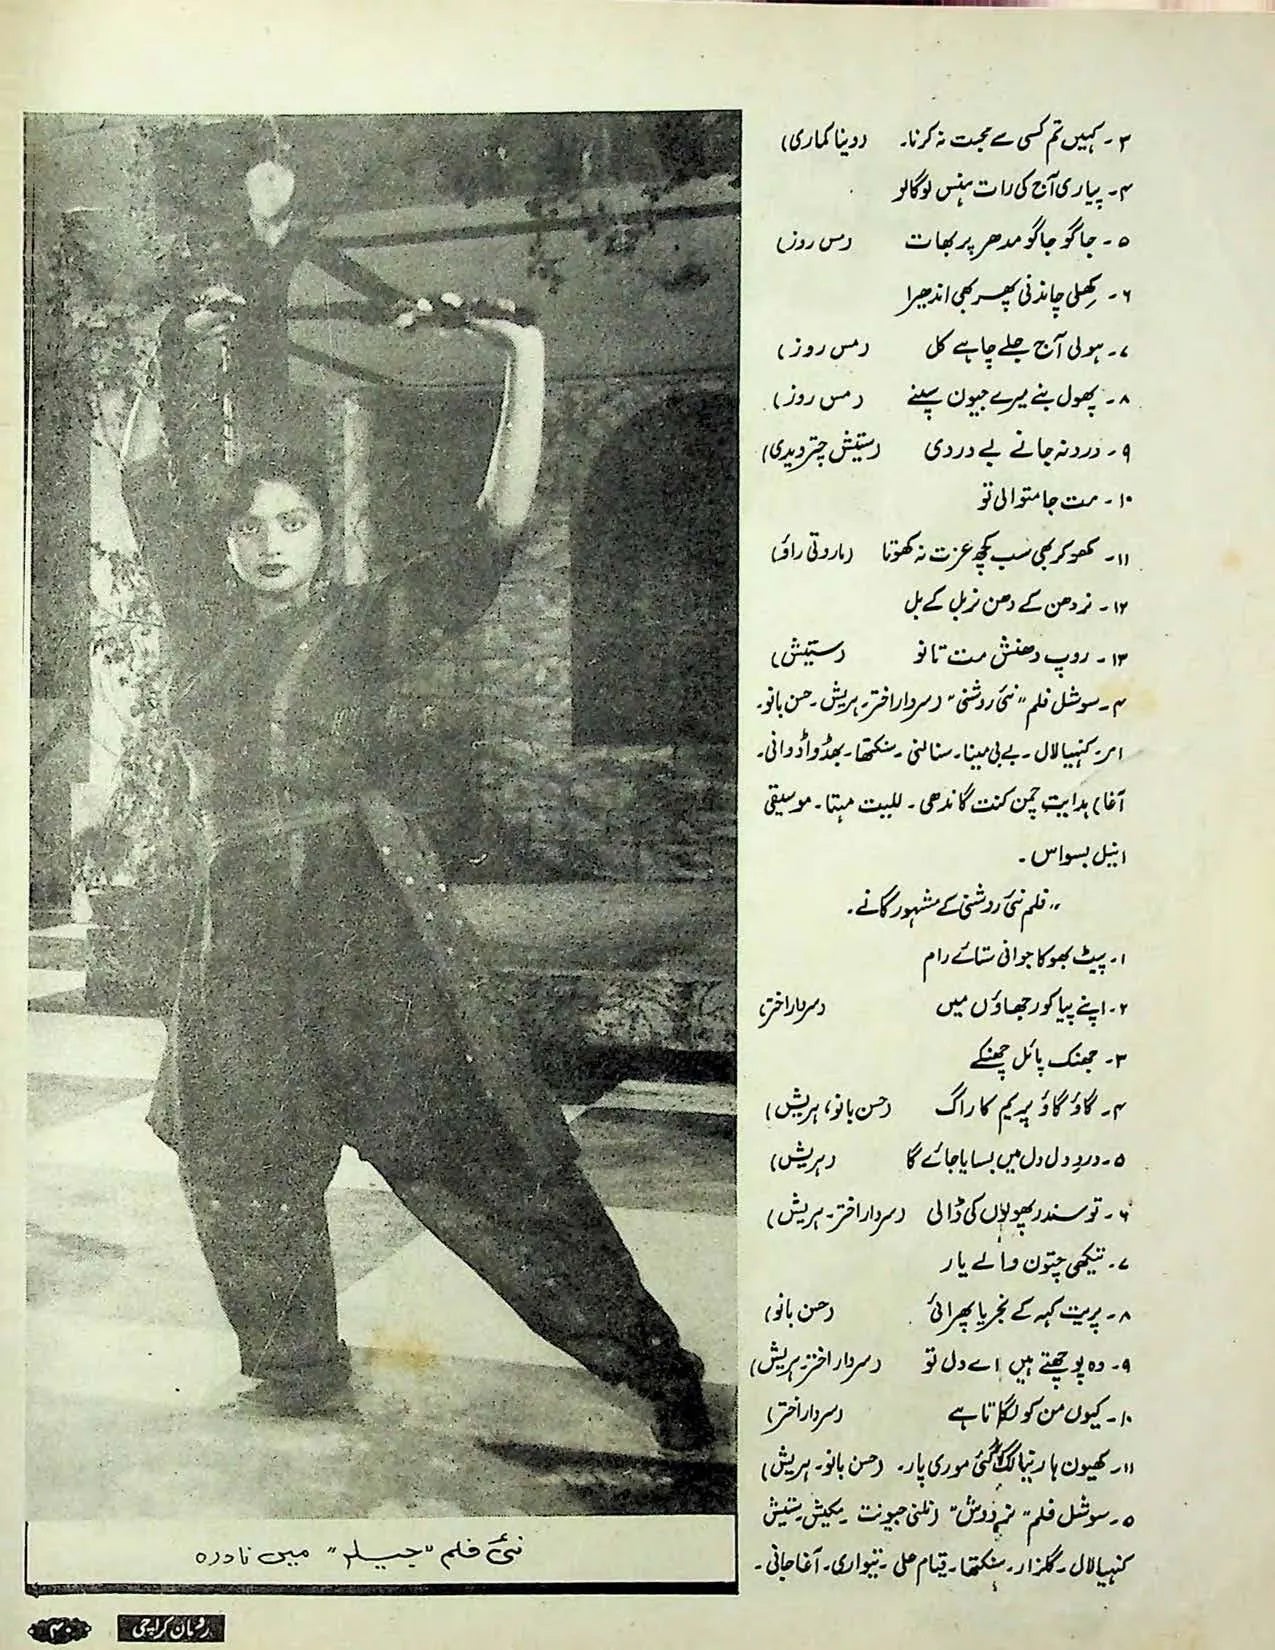 ۳۔ کہیں تم کسی سے محبت نہ کرنا۔ (وینا کماری)
۴۔ پیاری آج کی رات ہنس لو گالو
۵۔ جاگو جاگو مدھر پربھات (مس روز)
۶۔ کھلی چاندنی پھر بھی اندھیرا
۷۔ ہولی آج جلے چاہے کل (مس روز)
۸۔ پھول بنے میرے جیون سپنے (مس روز)
۹۔ درد نہ جانے بے دردی (ستیش چترویدی)
۱۰۔ مت جا متوالی تو
۱۱۔ کھو کر بھی سب کچھ عزت نہ کھونا (ماروتی راؤ)
۱۲۔ نردھن کے دھن نربل کے بل
۱۳۔ روپ دھنش مت تانو (ستیش)
۴۔ سوشل فلم "نئی روشنی" (سردار اختر۔ ہریش۔ حسن بانو۔
امر۔ کنہیا لال۔ بے بی مینا۔ سنالنی۔ سنکٹھا۔ بھڈواڈوانی۔
آغا) ہدایت چمن کنت گاندھی۔ للیت مہتا۔ موسیقی
انیل بسواس۔
"فلم نئی روشنی کے مشہور گانے۔
۱۔ پیٹ بھوکا جوانی ستائے رام
۲۔ اپنے پیا کو رجھاؤں میں (سردار اختر)
۳۔ جھنک پائل چھنکے
۴۔ گاؤ گاؤ پریم کا راگ (حسن بانو، ہریش)
۵۔ درد دل دل میں بسایا جائے گا (ہریش)
۶۔ تو سندر پھولوں کی ڈالی (سردار اختر۔ ہریش)
۷۔ تیکھی چتون والے یار
۸۔ پریت کہہ کے نجریا پھرائی (حسن بانو)
۹۔ وہ پوچھتے ہیں اے دل تو (سردار اختر۔ ہریش)
۱۰۔ کیوں من کو لگاتا ہے (سردار اختر)
۱۱۔ کھیون ہار نیا لگ گئی موری پار۔ (حسن بانو۔ ہریش)
۵۔ سوشل فلم "نردوش" (نلنی جیونت۔ مکیش۔ ستیش
کنہیا لال۔ گلزار۔ سنکٹھا۔ قیام علی۔ تیواری۔ آغا جانی۔
نئی فلم "جیلر" میں نادرہ
رومان کراچی
۴۰